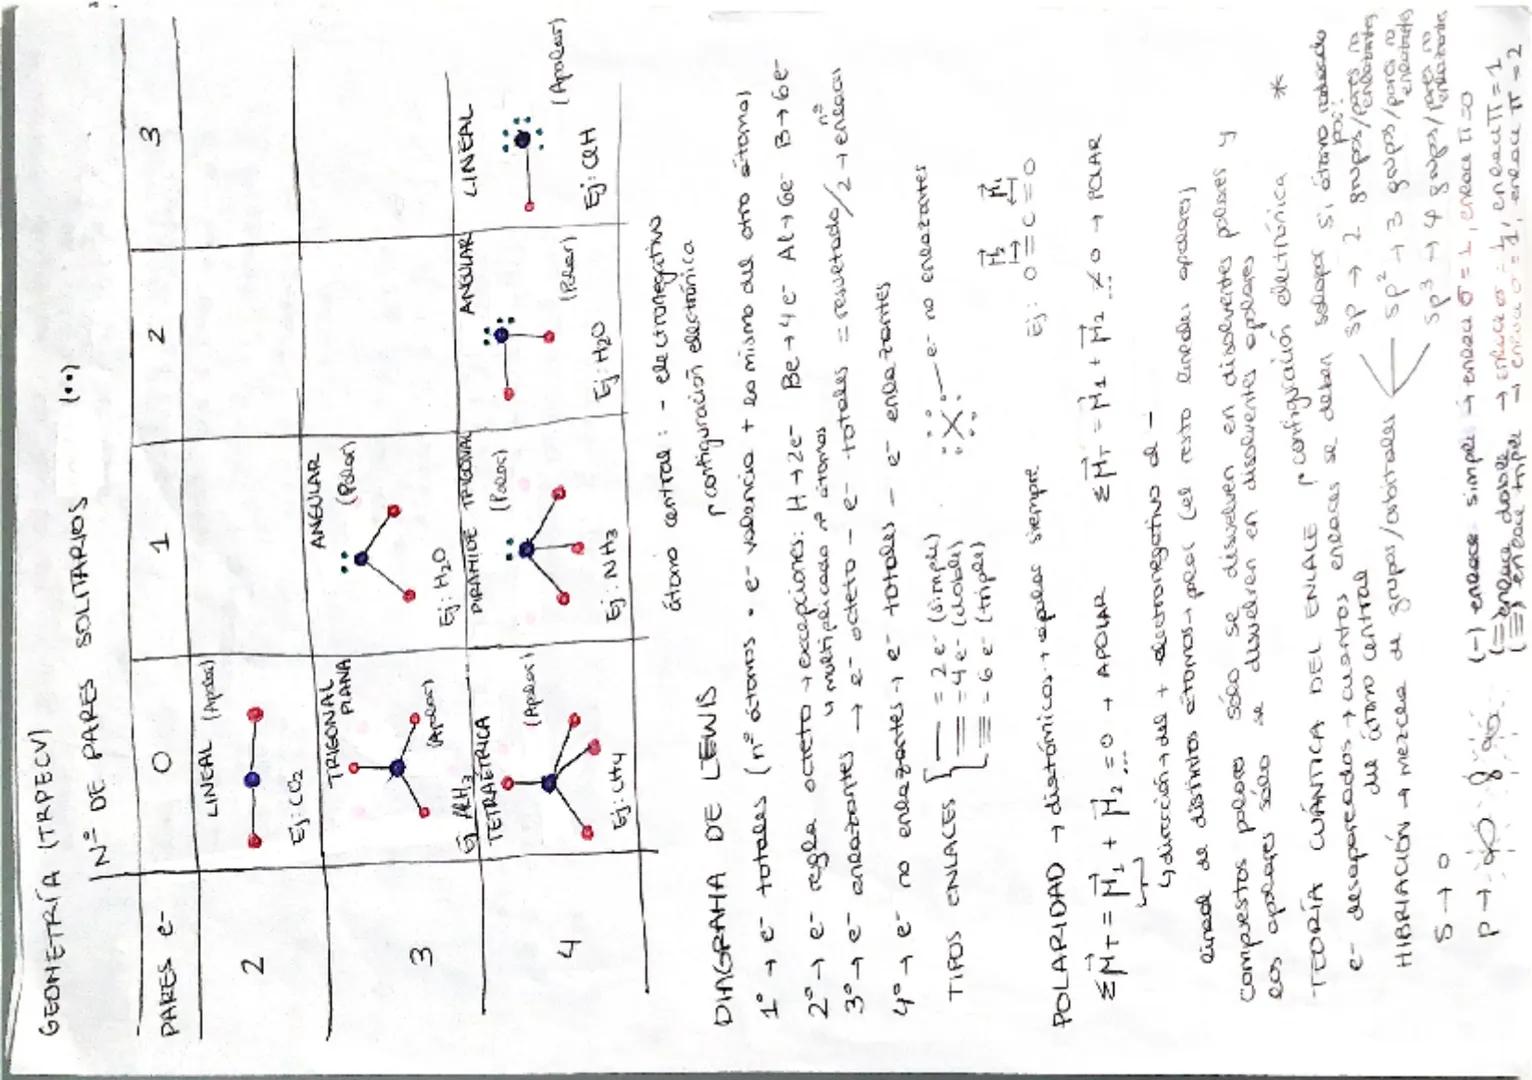 GEOMETRÍA (TRPECV)
Nº DE PARES SOLITARIOS (••)
PARES e- 0 1 2 3
2
LINEAL (Apolar)
Ej: CO2
3
TRIGONAL PLANA
(Apolar)
Ej AlH3
ANGULAR
(Polar)
Ej: H2O
4
TETRAÉTRICA
(Apolar)
Ej: CH4
PIRÁMIDE TRIGONAL
(Polar)
Ej: NH3
ANGULAR
(Polar)
Ej: H2O
LINEAL
(Apolar)
Ej: ClH
átomo central: - electronegativo
DIAGRAMA DE LEWIS configuración electrónica
1º → e- totales (nº átomos • e- valencia + lo mismo del otro átomo)
2º → e- regla octeto → excepciones: H→2e- Be→4e- Al→6e- B→6e-
multiplicado nº átomos
3º → e- enlazantes → e- octeto - e- totales = resultado/2 → nº enlaces
4º → e- no enlazantes → e- totales - e- enlazantes
TIPOS ENLACES
— = 2e- (simple)
= = 4e- (doble)
≡ = 6e- (triple)
:X: — e- no enlazantes
POLARIDAD → diatómicos → apolar siempre
Ej: O=C=O
μ2 μ1
Σμ⃗T = μ⃗1 + μ⃗2 ... = 0 → APOLAR
Σμ⃗T = μ⃗1 + μ⃗2 ... ≠ 0 → POLAR
↳ dirección → del + electronegativo al -
lineal de distintos átomos → polar (el resto lineales apolares)
compuestos polares sólo se disuelven en disolventes polares y
los apolares sólo se disuelven en disolventes apolares
*
TEORÍA CUÁNTICA DEL ENLACE configuración electrónica
e- desapareados → cuantos enlaces se deben solapar si átomo rodeado por:
del átomo central
HIBRIACIÓN → mezcla de grupos/orbitales
sp → 2 grupos/pares no enlazantes
sp2 → 3 grupos/pares no enlazantes
sp3 → 4 grupos/pares no enlazantes
S → O
p →
(-) enlace simple → enlace σ = 1, enlace π = 0
(=) enlace doble → enlace σ = 1, enlace π = 1
(≡) enlace triple → enlace σ = 1, enlace π = 2